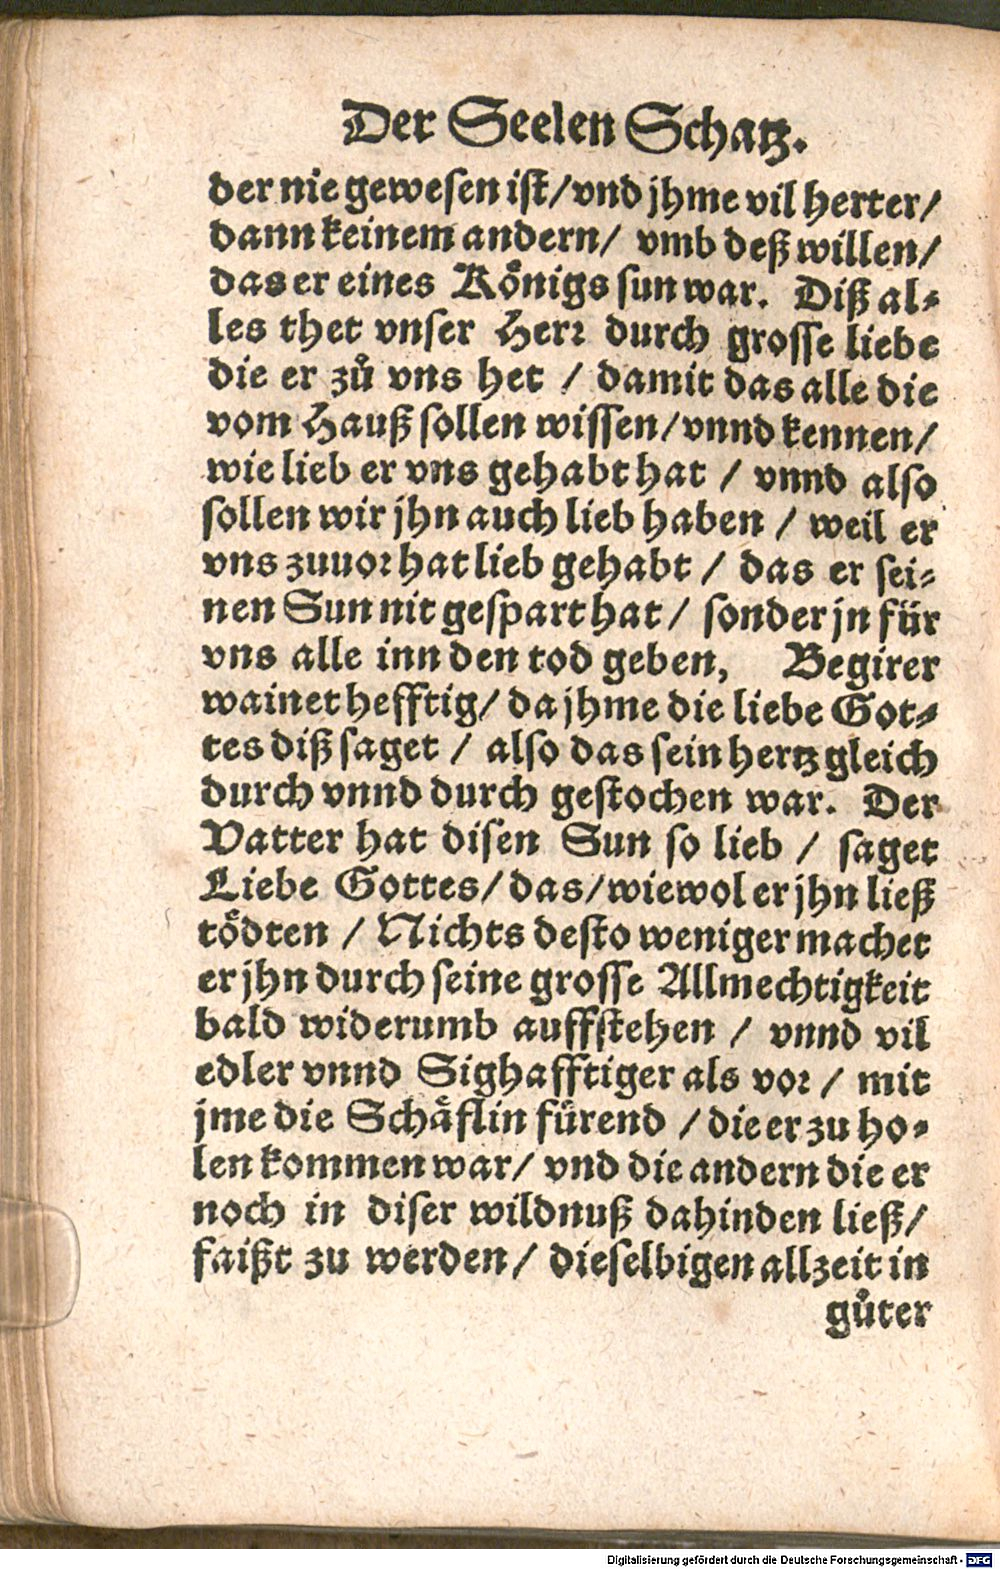 Der Seelen Schatz.
der nie gewesen ist/ vnd jhme vil herter/
dann keinem andern/ vmb deß willen/
das er eines Koͤnigs sun war. Diß al-
les thet vnser Herr durch grosse liebe
die er zuͦ vns het / damit das alle die
vom Hauß sollen wissen/ vnnd kennen/
wie lieb er vns gehabt hat / vnnd also
sollen wir jhn auch lieb haben / weil er
vns zuuor hat lieb gehabt / das er sei-
nen Sun nit gespart hat / sonder jn für
vns alle inn den tod geben, Begirer
wainet hefftig/ da jhme die liebe Got-
tes diß saget / also das sein hertz gleich
durch vnnd durch gestochen war. Der
Vatter hat disen Sun so lieb / saget
Liebe Gottes/ das/ wiewol er jhn ließ
toͤdten / Nichts desto weniger machet
er jhn durch seine grosse Allmechtigkeit
bald widerumb auffstehen / vnnd vil
edler vnnd Sighafftiger als vor / mit
jme die Schaͤflin fuͤrend / die er zu ho-
len kommen war/ vnd die andern die er
noch in diser wildnuß dahinden ließ/
faißt zu werden/ dieselbigen allzeit in
guͦter
Digitalisierung gefördert durch die Deutsche Forschungsgemeinschaft - DFG